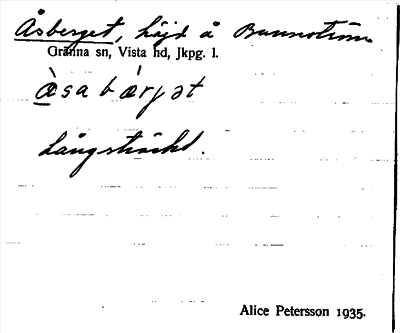 Åsberget, höjd å Bunnström
Gränna sn, Vista hd, Jkpg. l.
Långsträckt.
Alice Petersson 1935.